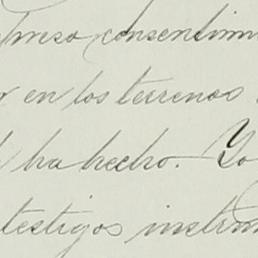 preso consentim
en los terrenos
ha hecho. Yo
testigos instrum